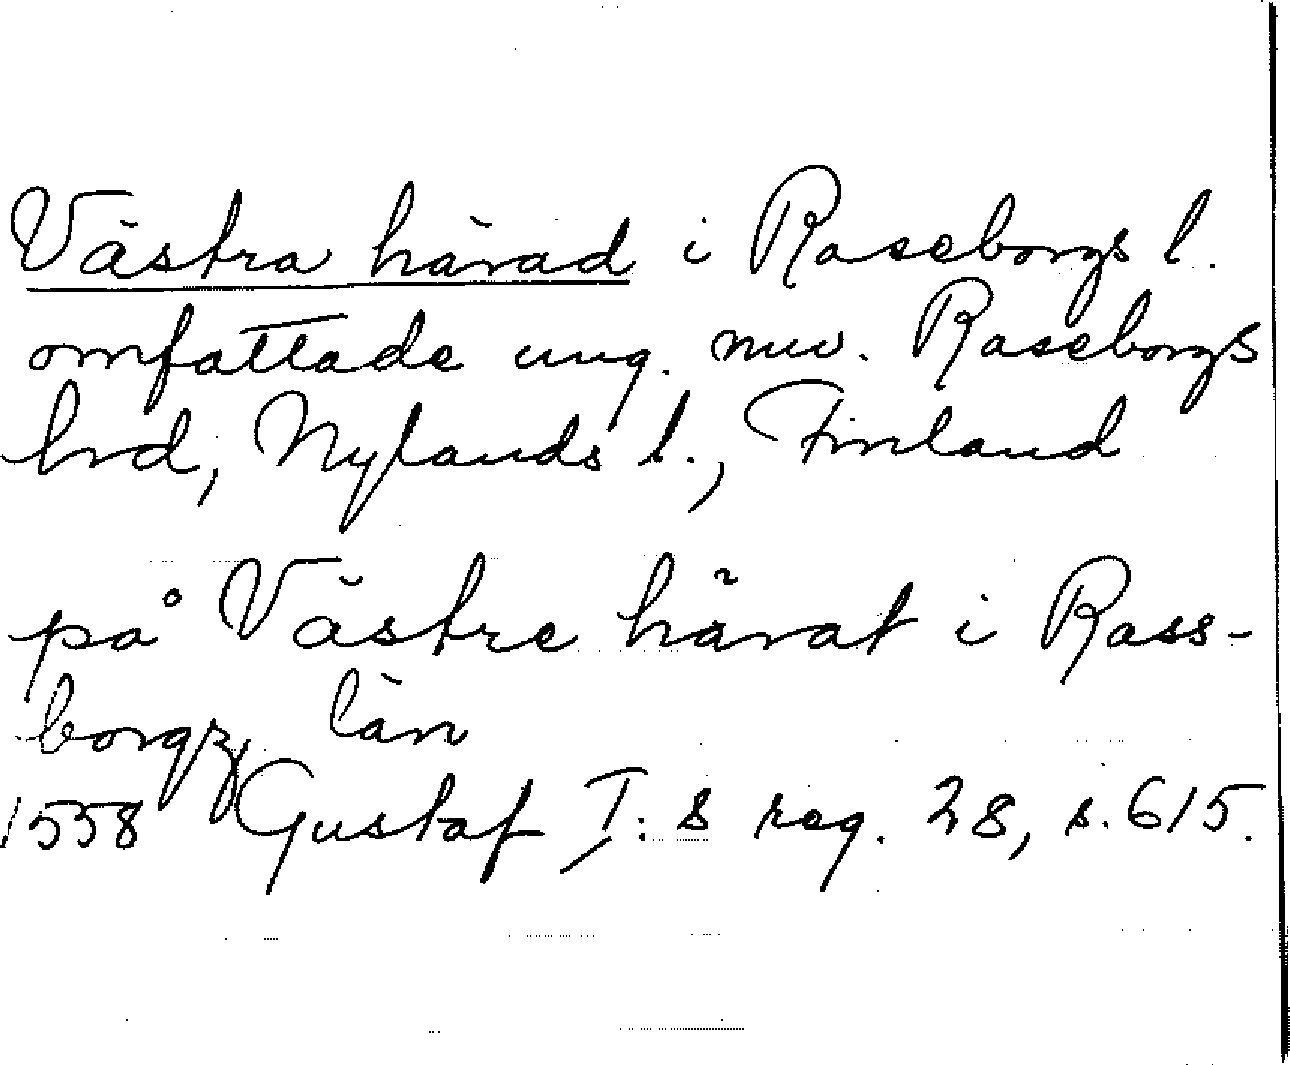 Västra härad i Raseborgs l.
omfattade ung. nuv. Raseborgs
hrd, Nylands l., Finland
på Västre härat i Rass-
borgz län
1558 Gustaf I:s reg. 28, s. 615.